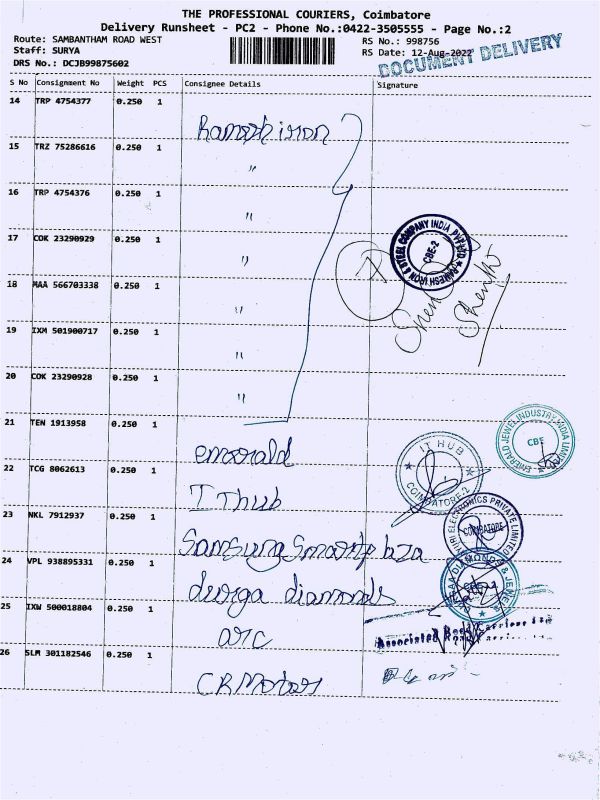 THE PROFESSIONAL COURIERS, Coimbatore
Delivery Runsheet - PC2 - Phone No.:0422-3505555 - Page No.:2
Route: SAMBANTHAM ROAD WEST
RS No.: 998756
Staff: SURYA
RS Date: 12-Aug-2022
DRS No.: DCJB99875602
DOCUMENT DELIVERY
S No Consignment No Weight PCS Consignee Details Signature
14 TRP 4754377 0.250 1 Ramesh iron
15 TRZ 75286616 0.250 1 "
16 TRP 4754376 0.250 1 "
17 COK 23290929 0.250 1 "
RAMESH IRON & STEEL COMPANY INDIA PVT LTD
CBE-2
7
18 MAA 566703338 0.250 1 "
19 IXM 501900717 0.250 1 "
20 COK 23290928 0.250 1 "
21 TEN 1913958 0.250 1 emerald
EMERALD JEWEL INDUSTRY INDIA LIMITED
CBE
22 TCG 8062613 0.250 1 IThub
IT HUB
COIMBATORE-2
23 NKL 7912937 0.250 1 Samsung Smart
ELECTRONICS PRIVATE LIMITED
COIMBATORE
24 VPL 938895331 0.250 1 durga diamonds
25 IXW 500018804 0.250 1 arc
Associated Road Carriers
26 SLM 301182546 0.250 1 CR Motors